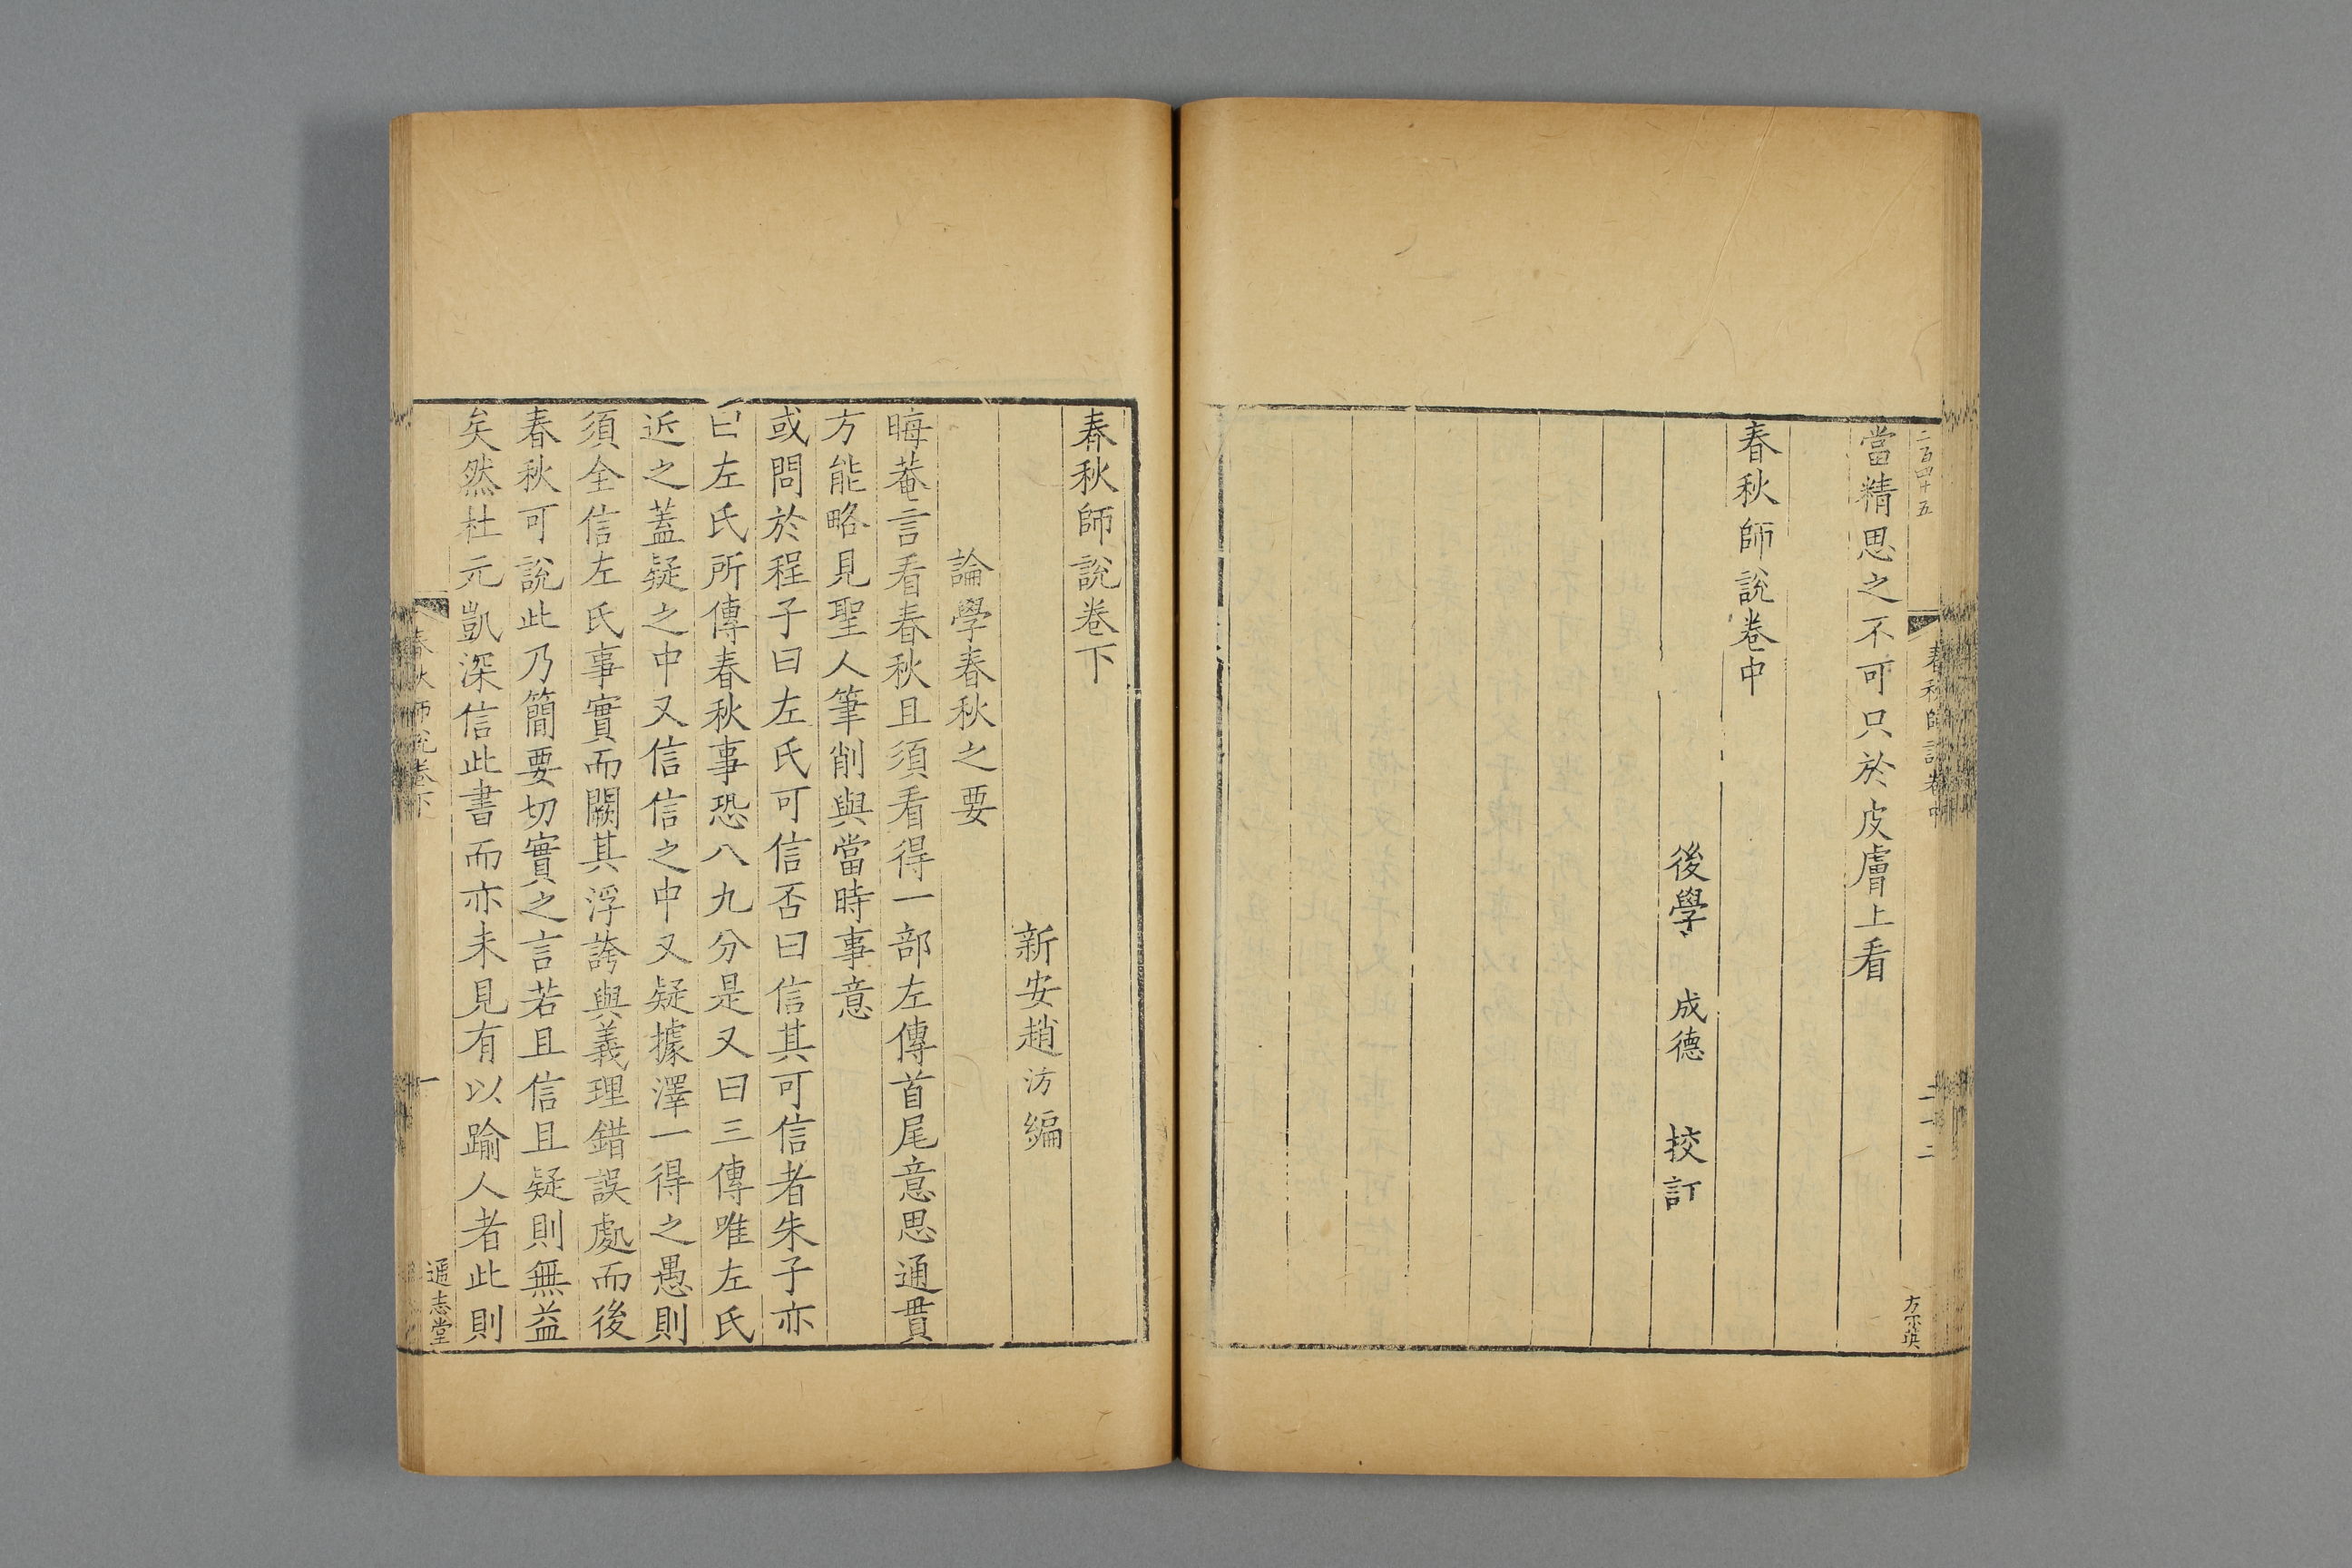 二百四十五
春秋師說卷中
二十二
當精思之不可只於皮膚上看
春秋師說卷中
後學 成德 校訂
春秋師說卷下
新安趙汸編
論學春秋之要
晦菴言看春秋且須看得一部左傳首尾意思通貫
方能略見聖人筆削與當時事意
或問於程子曰左氏可信否曰信其可信者朱子亦
曰左氏所傳春秋事恐八九分是又曰三傳唯左氏
近之蓋疑之中又信信之中又疑據澤一得之愚則
須全信左氏事實而闕其浮誇與義理錯誤處而後
春秋可說此乃簡要切實之言若且信且疑則無益
矣然杜元凱深信此書而亦未見有以踰人者此則
春秋師說卷下
一
通志堂